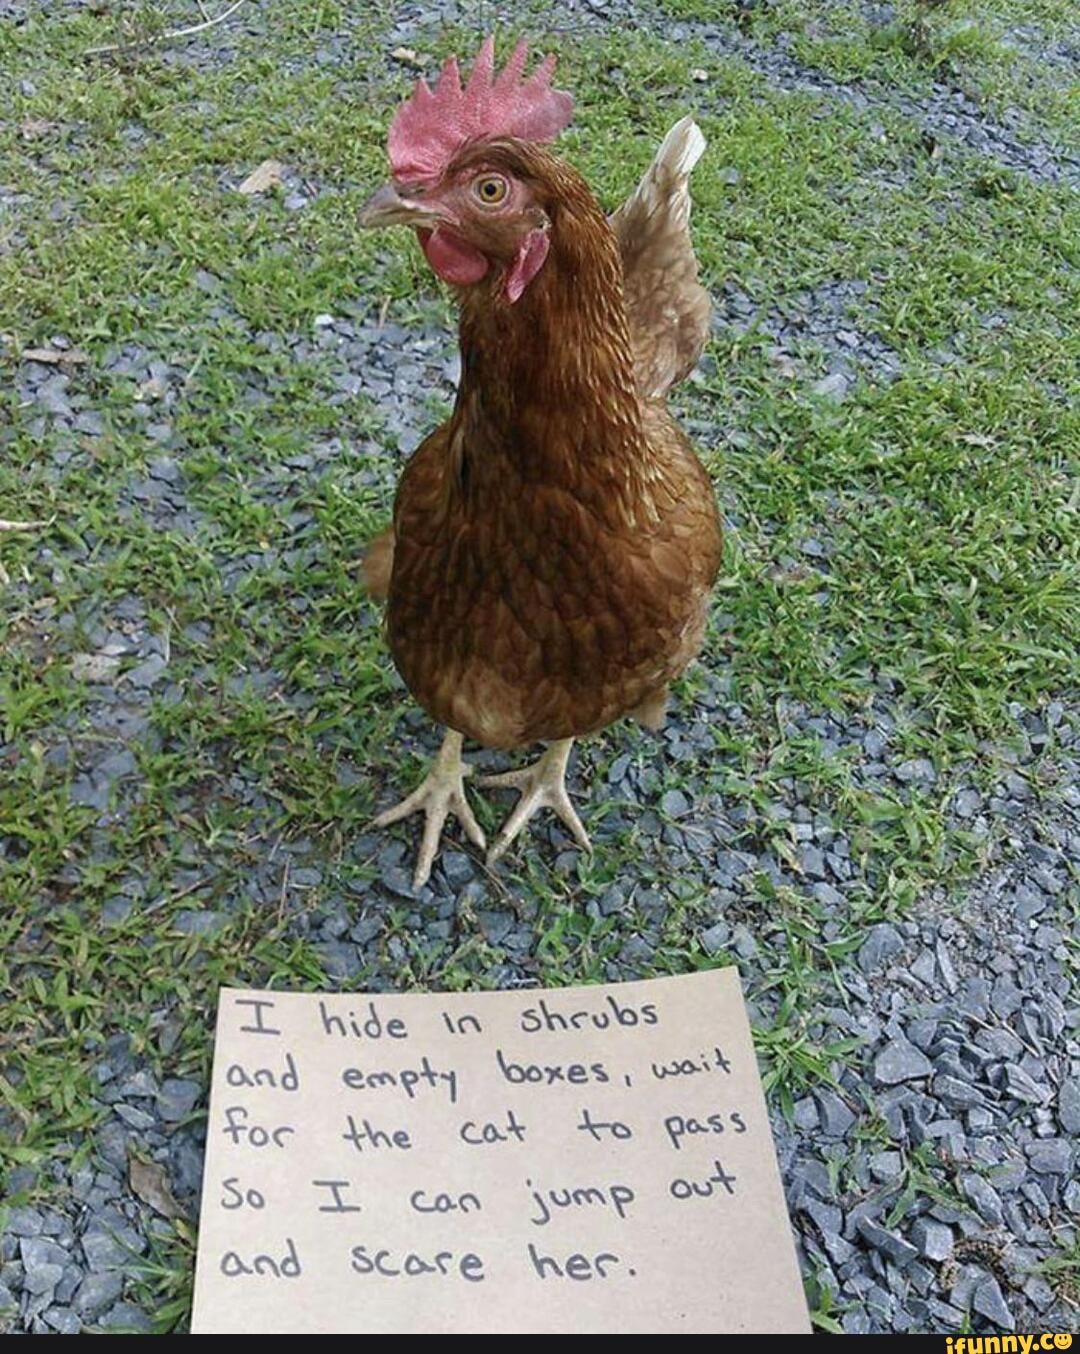 I hide in shrubs
and empty boxes, wait
for the cat to pass
So I can jump out
and scare her.
ifunny.co